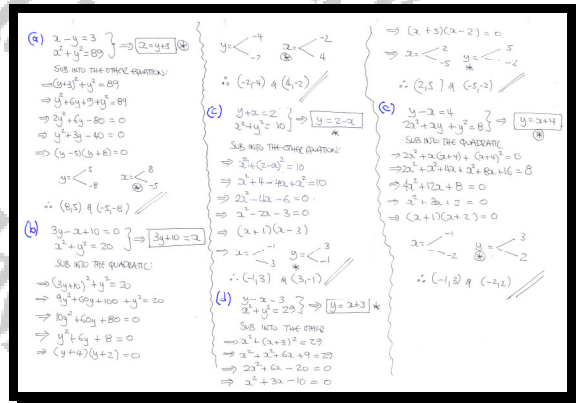 (a) x - y = 3
x² + y² = 89 } ⇒ x = y+3 *
SUB INTO THE OTHER EQUATION:
⇒ (y+3)² + y² = 89
⇒ y² + 6y + 9 + y² = 89
⇒ 2y² + 6y - 80 = 0
⇒ y² + 3y - 40 = 0
⇒ (y-5)(y+8) = 0
y = < 5 -8 x = < 8 -5 *
∴ (8,5) & (-5,-8)
(b) 3y - x + 10 = 0
x² + y² = 20 } ⇒ 3y + 10 = x
SUB INTO THE QUADRATIC:
⇒ (3y+10)² + y² = 20
⇒ 9y² + 60y + 100 + y² = 20
⇒ 10y² + 60y + 80 = 0
⇒ y² + 6y + 8 = 0
⇒ (y+4)(y+2) = 0
y = < -4 -2 x = < -2 4 *
∴ (-2,-4) & (4,-2)
(c) y + x = 2
x² + y² = 10 } ⇒ y = 2-x *
SUB INTO THE OTHER EQUATION:
⇒ x² + (2-x)² = 10
⇒ x² + 4 - 4x + x² = 10
⇒ 2x² - 4x - 6 = 0
⇒ x² - 2x - 3 = 0
⇒ (x+1)(x-3)
⇒ x = < -1 3 y = < 3 -1 *
∴ (-1,3) & (3,-1)
(d) y - x = 3
x² + y² = 29 } ⇒ y = x+3 *
SUB INTO THE OTHER
⇒ x² + (x+3)² = 29
⇒ x² + x² + 6x + 9 = 29
⇒ 2x² + 6x - 20 = 0
⇒ x² + 3x - 10 = 0
⇒ (x+5)(x-2) = 0
⇒ x = < 2 -5 y = < 5 -2 *
∴ (2,5) & (-5,-2)
(e) y - x = 4
2x² + xy + y² = 8 } ⇒ y = x+4 *
SUB INTO THE QUADRATIC
⇒ 2x² + x(x+4) + (x+4)² = 0
⇒ 2x² + x² + 4x + x² + 8x + 16 = 8
⇒ 4x² + 12x + 8 = 0
⇒ x² + 3x + 2 = 0
⇒ (x+1)(x+2) = 0
x = < -1 -2 y = < 3 2 *
∴ (-1,3) & (-2,2)